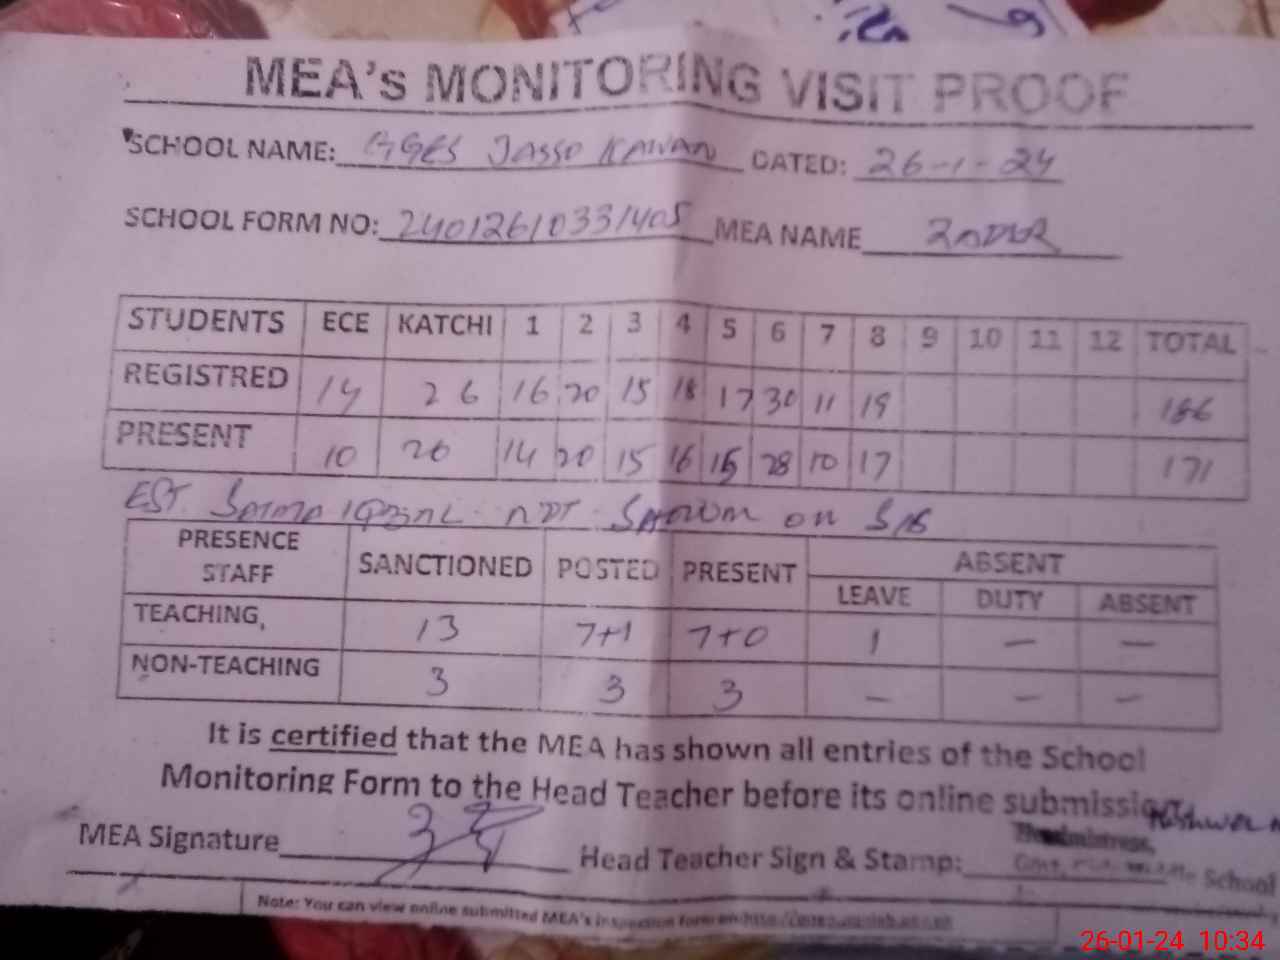 MEA's MONITORING VISIT PROOF
SCHOOL NAME: GGES JASSO KAWAN DATED: 26-1-24
SCHOOL FORM NO: 24012610331405 MEA NAME
STUDENTS ECE KATCHI 1 2 3 4 5 6 7 8 9 10 11 12 TOTAL
REGISTRED 14 26 16 20 15 18 17 30 11 19 186
PRESENT 10 26 14 20 15 16 15 28 10 17 171
EST. NOT SHOWN ON SIS
PRESENCE STAFF SANCTIONED POSTED PRESENT ABSENT
LEAVE DUTY ABSENT
TEACHING, 13 7+1 7+0 1 — —
NON-TEACHING 3 3 3 — — —
It is certified that the MEA has shown all entries of the School
Monitoring Form to the Head Teacher before its online submission
MEA Signature Head Teacher Sign & Stamp:
Headmistress,
Govt. Middle School
Note: You can view online submitted MEA's inspection form on
26-01-24 10:34